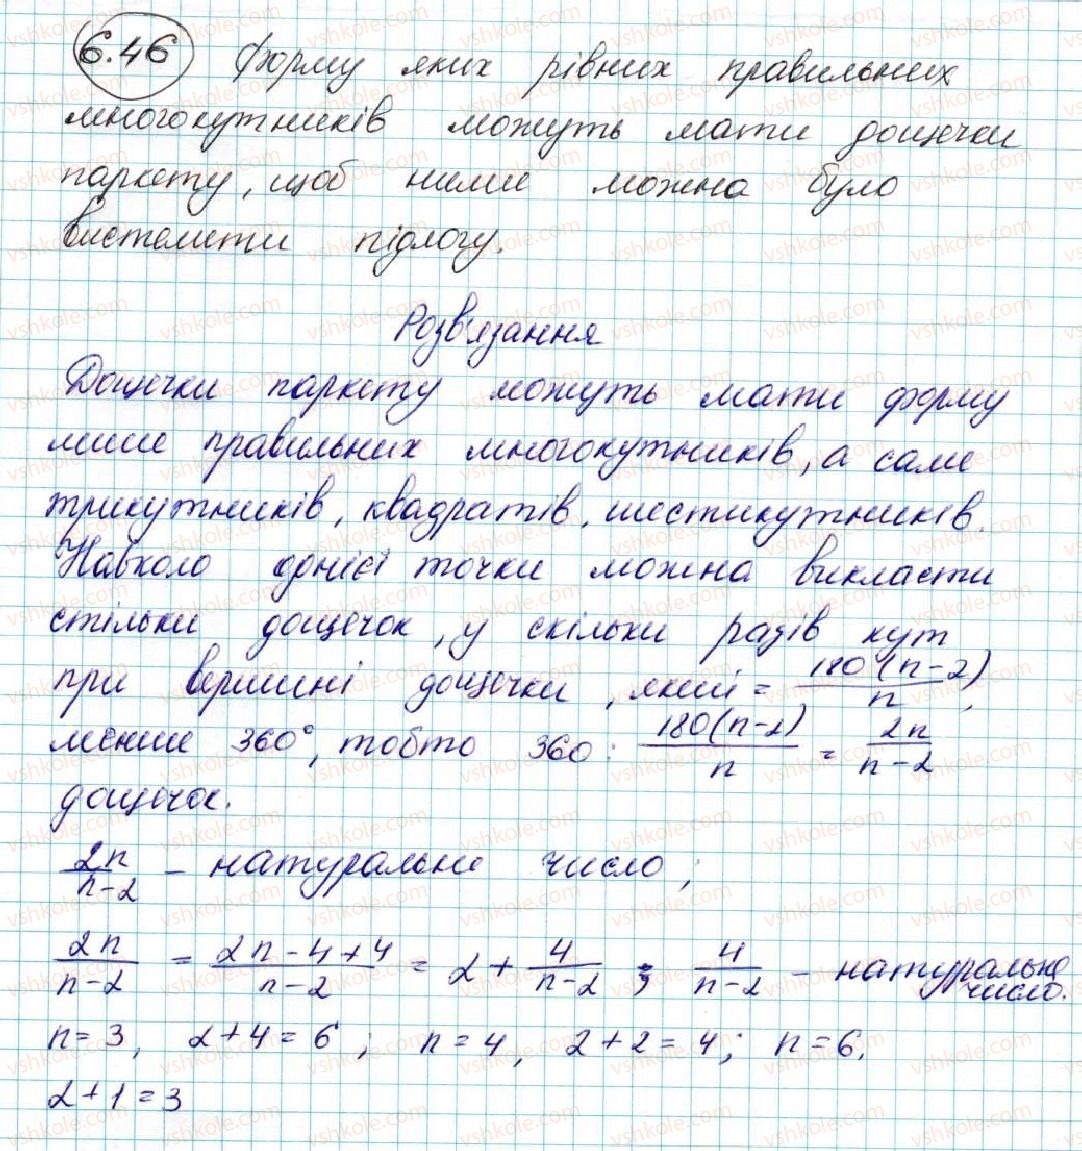 6.46 Форму яких рівних правильних
многокутників можуть мати дощечки
паркету, щоб ними можна було
вистелити підлогу.
Розв'язання
Дощечки паркету можуть мати форму
лише правильних многокутників, а саме
трикутників, квадратів, шестикутників.
Навколо однієї точки можна викласти
стільки дощечок, у скільки разів кут
при вершині дощечки, який = 180°(n-2)/n,
менше 360°, тобто 360 : 180(n-2)/n = 2n/n-2
дощечок.
2n/n-2 - натуральне число;
2n/n-2 = 2n-4+4/n-2 = 2 + 4/n-2 ; 4/n-2 - натуральне число.
n=3, 2+4=6; n=4, 2+2=4; n=6,
2+1=3